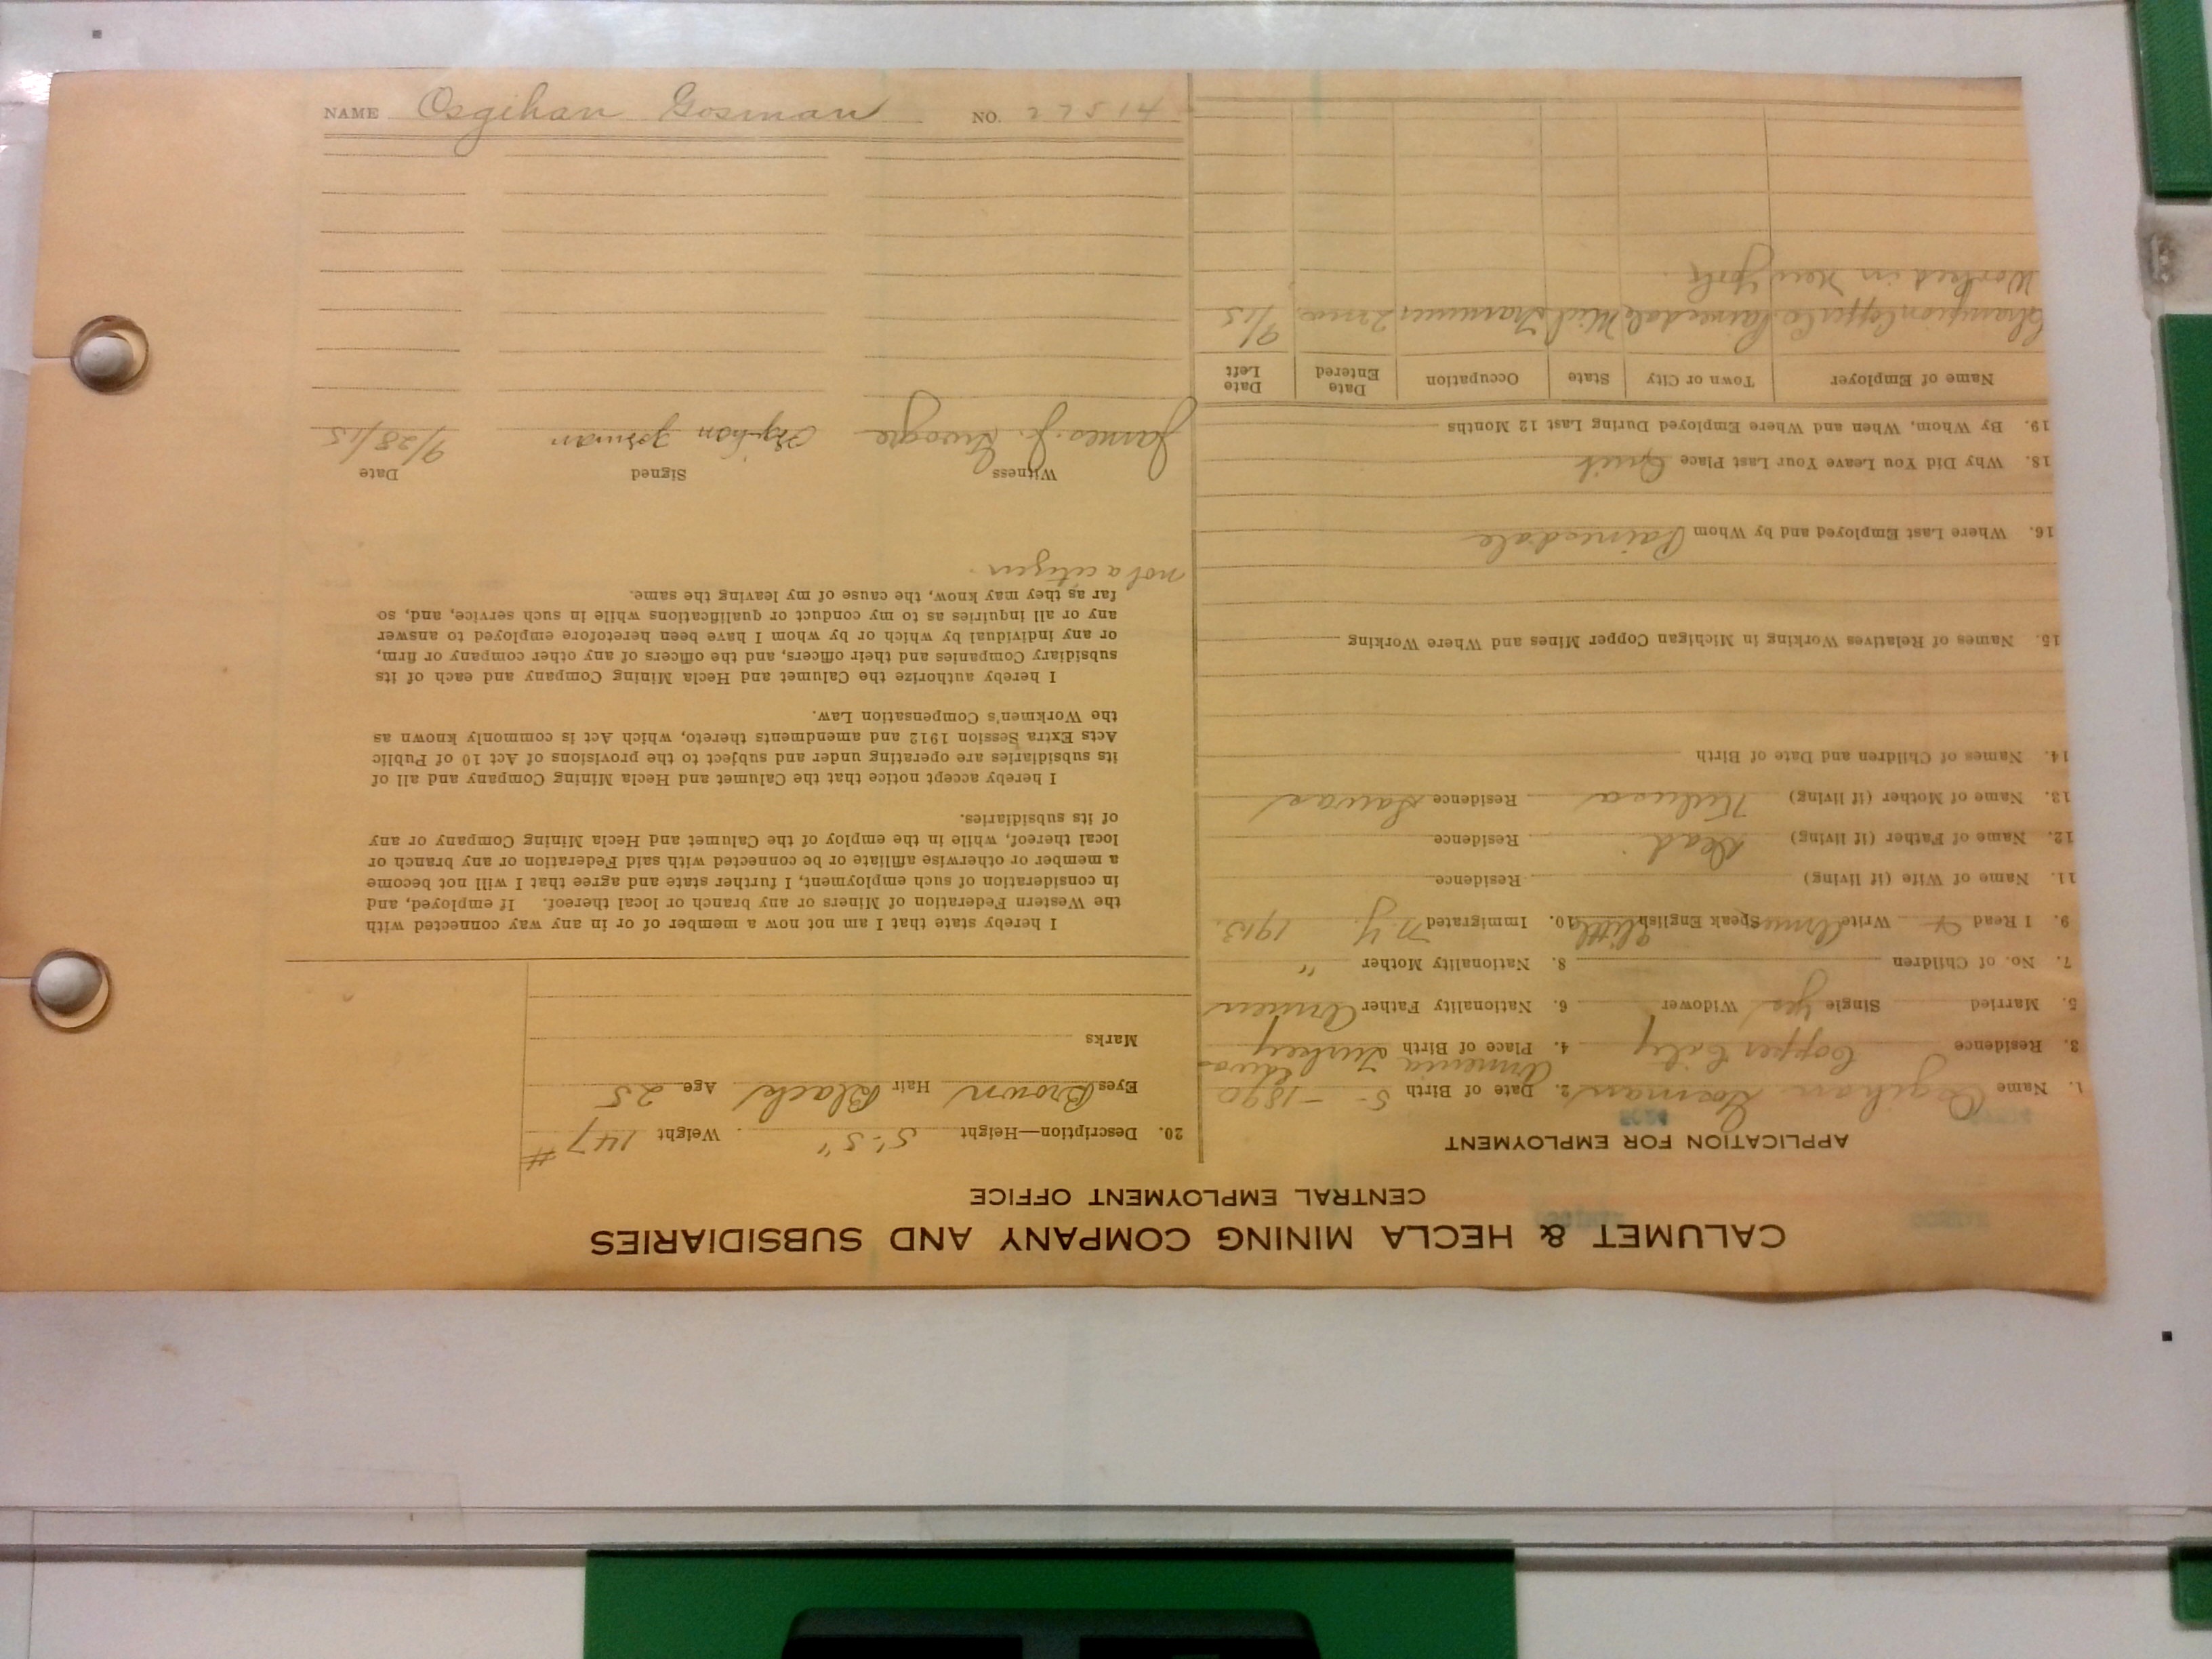 CALUMET & HECLA MINING COMPANY AND SUBSIDIARIES
CENTRAL EMPLOYMENT OFFICE
APPLICATION FOR EMPLOYMENT
1. Name Osgihan Gosman 2. Date of Birth 5 - 1890
Armenia
3. Residence Copper City 4. Place of Birth Turkey
5. Married Single Yes Widower 6. Nationality Father Armen
7. No. of Children 8. Nationality Mother "
9. I Read + Write Armen Speak English little 10. Immigrated N.Y. 1913.
11. Name of Wife (if living) Residence
12. Name of Father (if living) Dead Residence
13. Name of Mother (if living) Residence
14. Names of Children and Date of Birth
15. Names of Relatives Working in Michigan Copper Mines and Where Working
16. Where Last Employed and by Whom Painesdale
18. Why Did You Leave Your Last Place Quit
19. By Whom, When and Where Employed During Last 12 Months
Name of Employer Town or City State Occupation Date Entered Date Left
Champion Copper Co. Painesdale Mich Trammer 2 mos. 9/15
Worked in New York.
20. Description—Height 5'-5" Weight 147 #
Eyes Brown Hair Black Age 25
Marks
I hereby state that I am not now a member of or in any way connected with
the Western Federation of Miners or any branch or local thereof. If employed, and
in consideration of such employment, I further state and agree that I will not become
a member or otherwise affiliate or be connected with said Federation or any branch or
local thereof, while in the employ of the Calumet and Hecla Mining Company or any
of its subsidiaries.
I hereby accept notice that the Calumet and Hecla Mining Company and all of
its subsidiaries are operating under and subject to the provisions of Act 10 of Public
Acts Extra Session 1912 and amendments thereto, which Act is commonly known as
the Workmen's Compensation Law.
I hereby authorize the Calumet and Hecla Mining Company and each of its
subsidiary Companies and their officers, and the officers of any other company or firm,
or any individual by which or by whom I have been heretofore employed to answer
any or all inquiries as to my conduct or qualifications while in such service, and, so
far as they may know, the cause of my leaving the same.
not a citizen.
Witness Signed Date
James J. Osgihan Gosman 9/28/15
NAME Osgihan Gosman NO. 22514